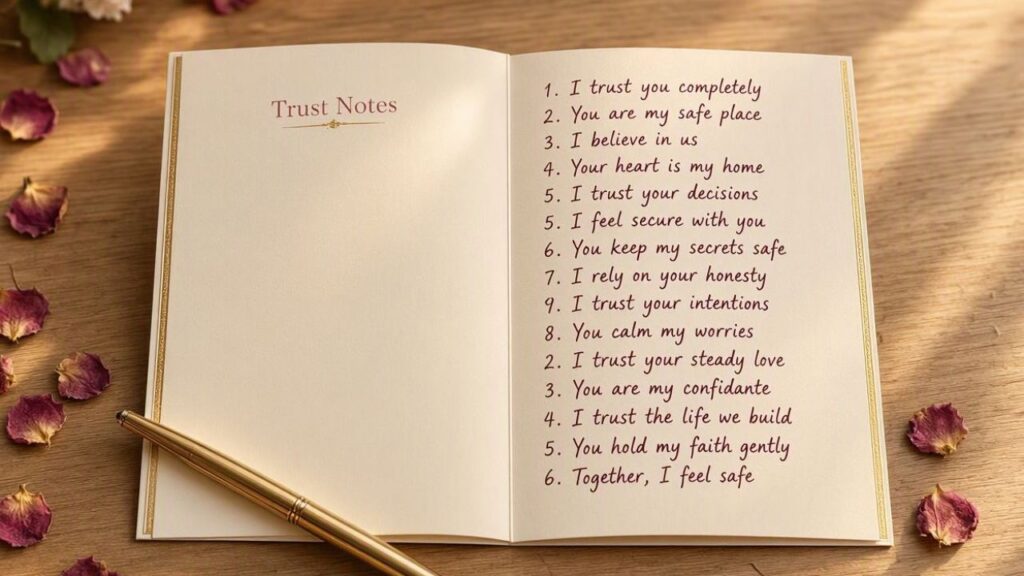 Trust Notes
1. I trust you completely
2. You are my safe place
3. I believe in us
4. Your heart is my home
5. I trust your decisions
5. I feel secure with you
6. You keep my secrets safe
7. I rely on your honesty
9. I trust your intentions
8. You calm my worries
2. I trust your steady love
3. You are my confidante
4. I trust the life we build
5. You hold my faith gently
6. Together, I feel safe